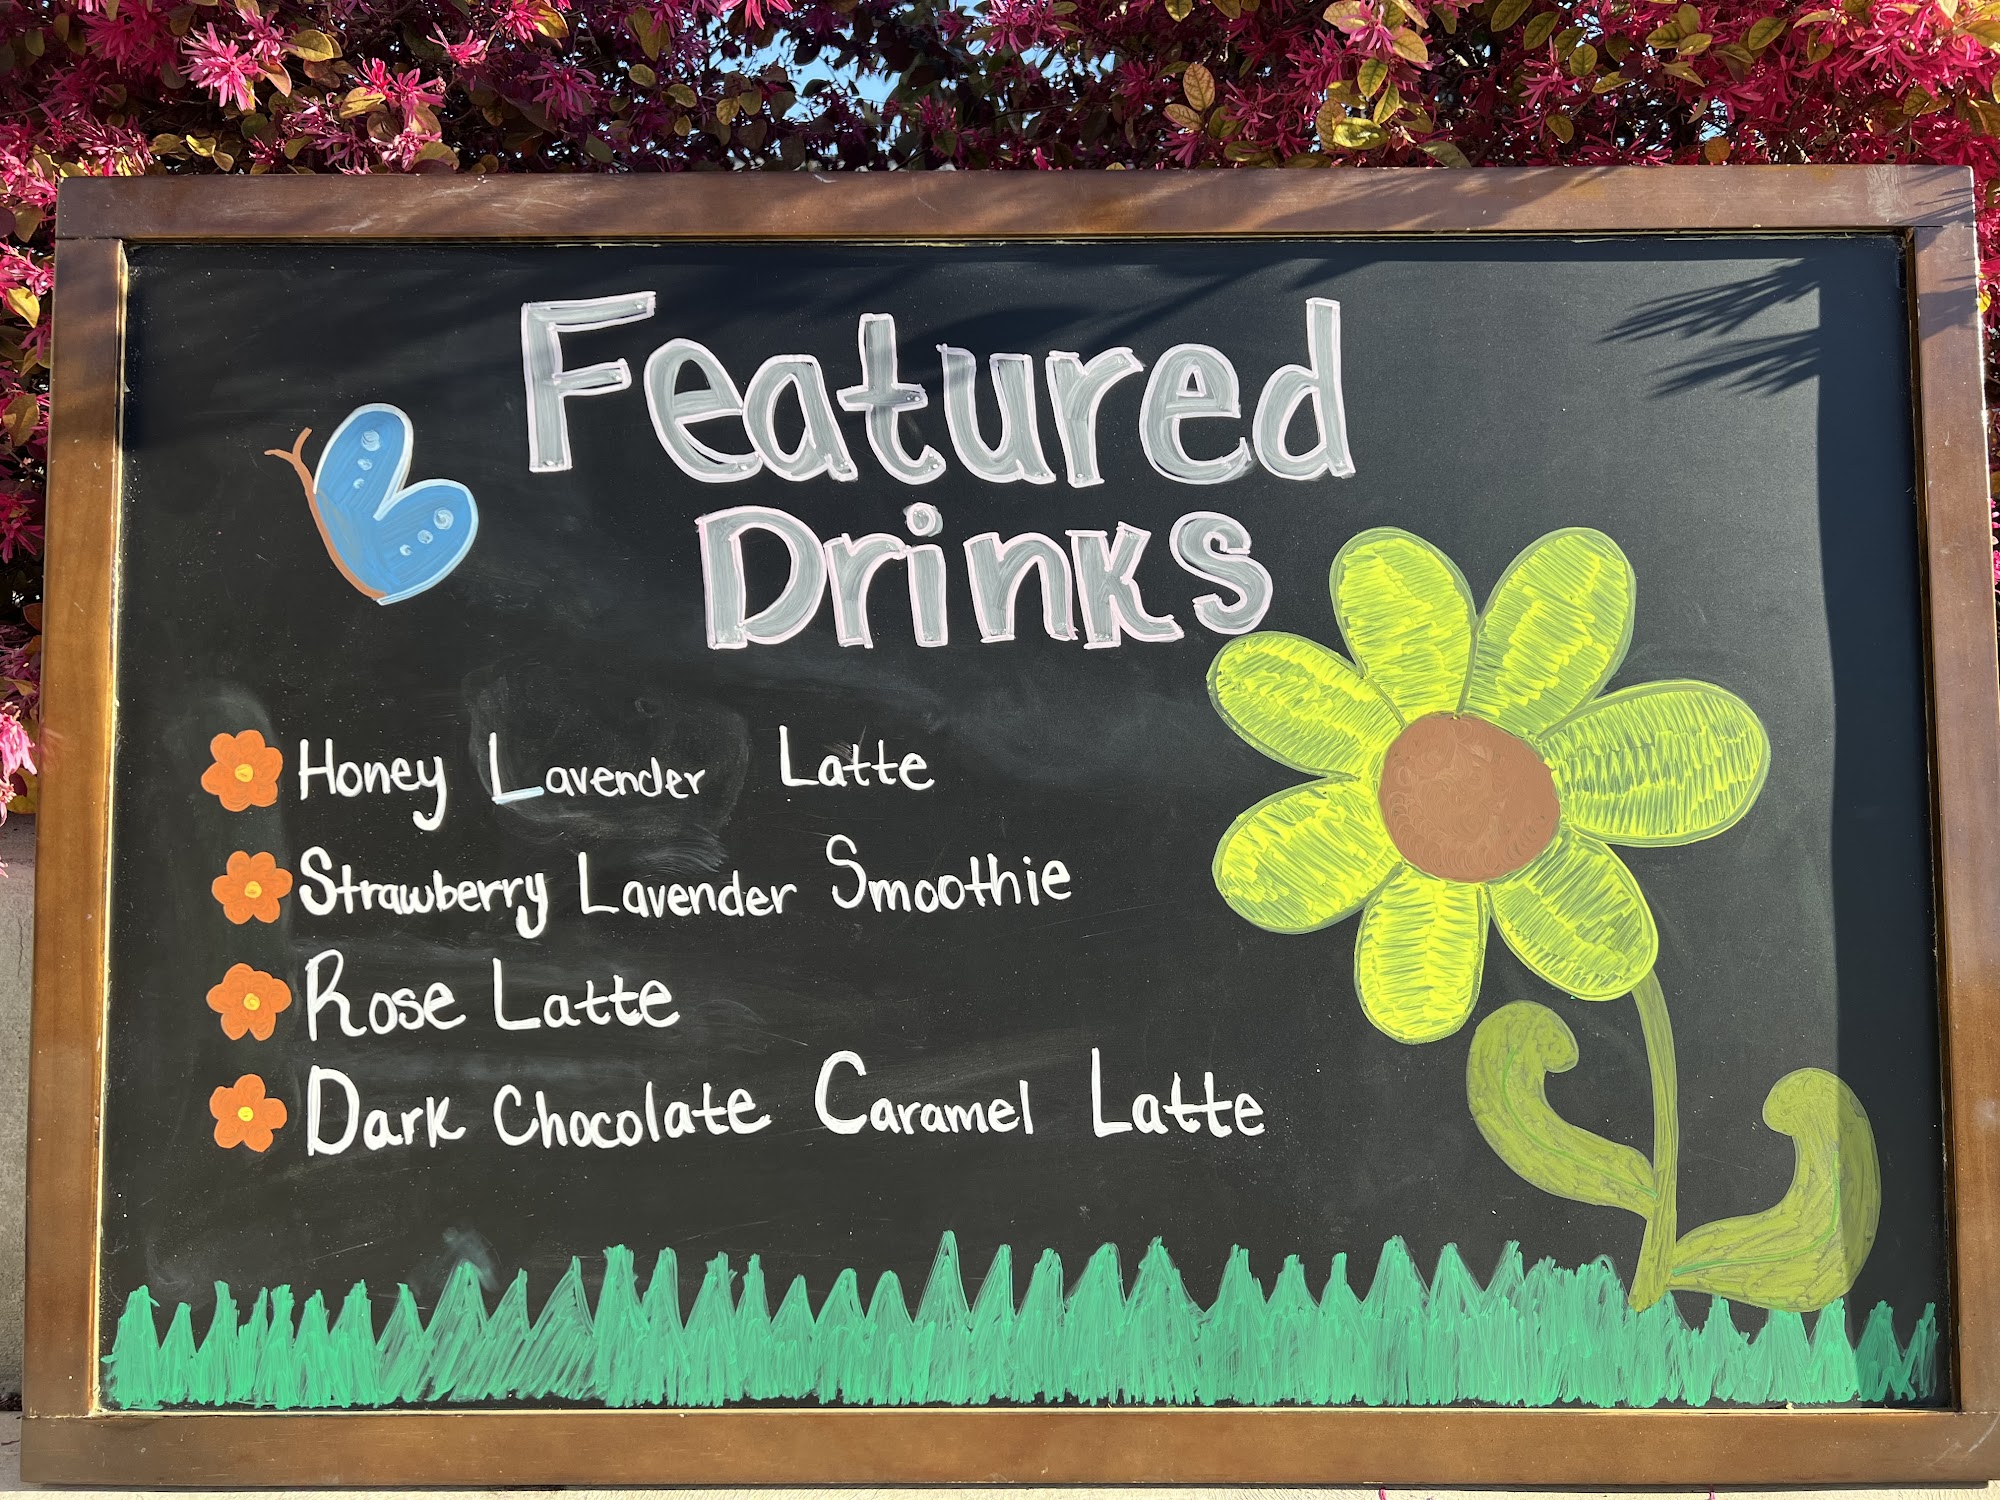 Featured
Drinks
Honey Lavender Latte
Strawberry Lavender Smoothie
Rose Latte
Dark Chocolate Caramel Latte